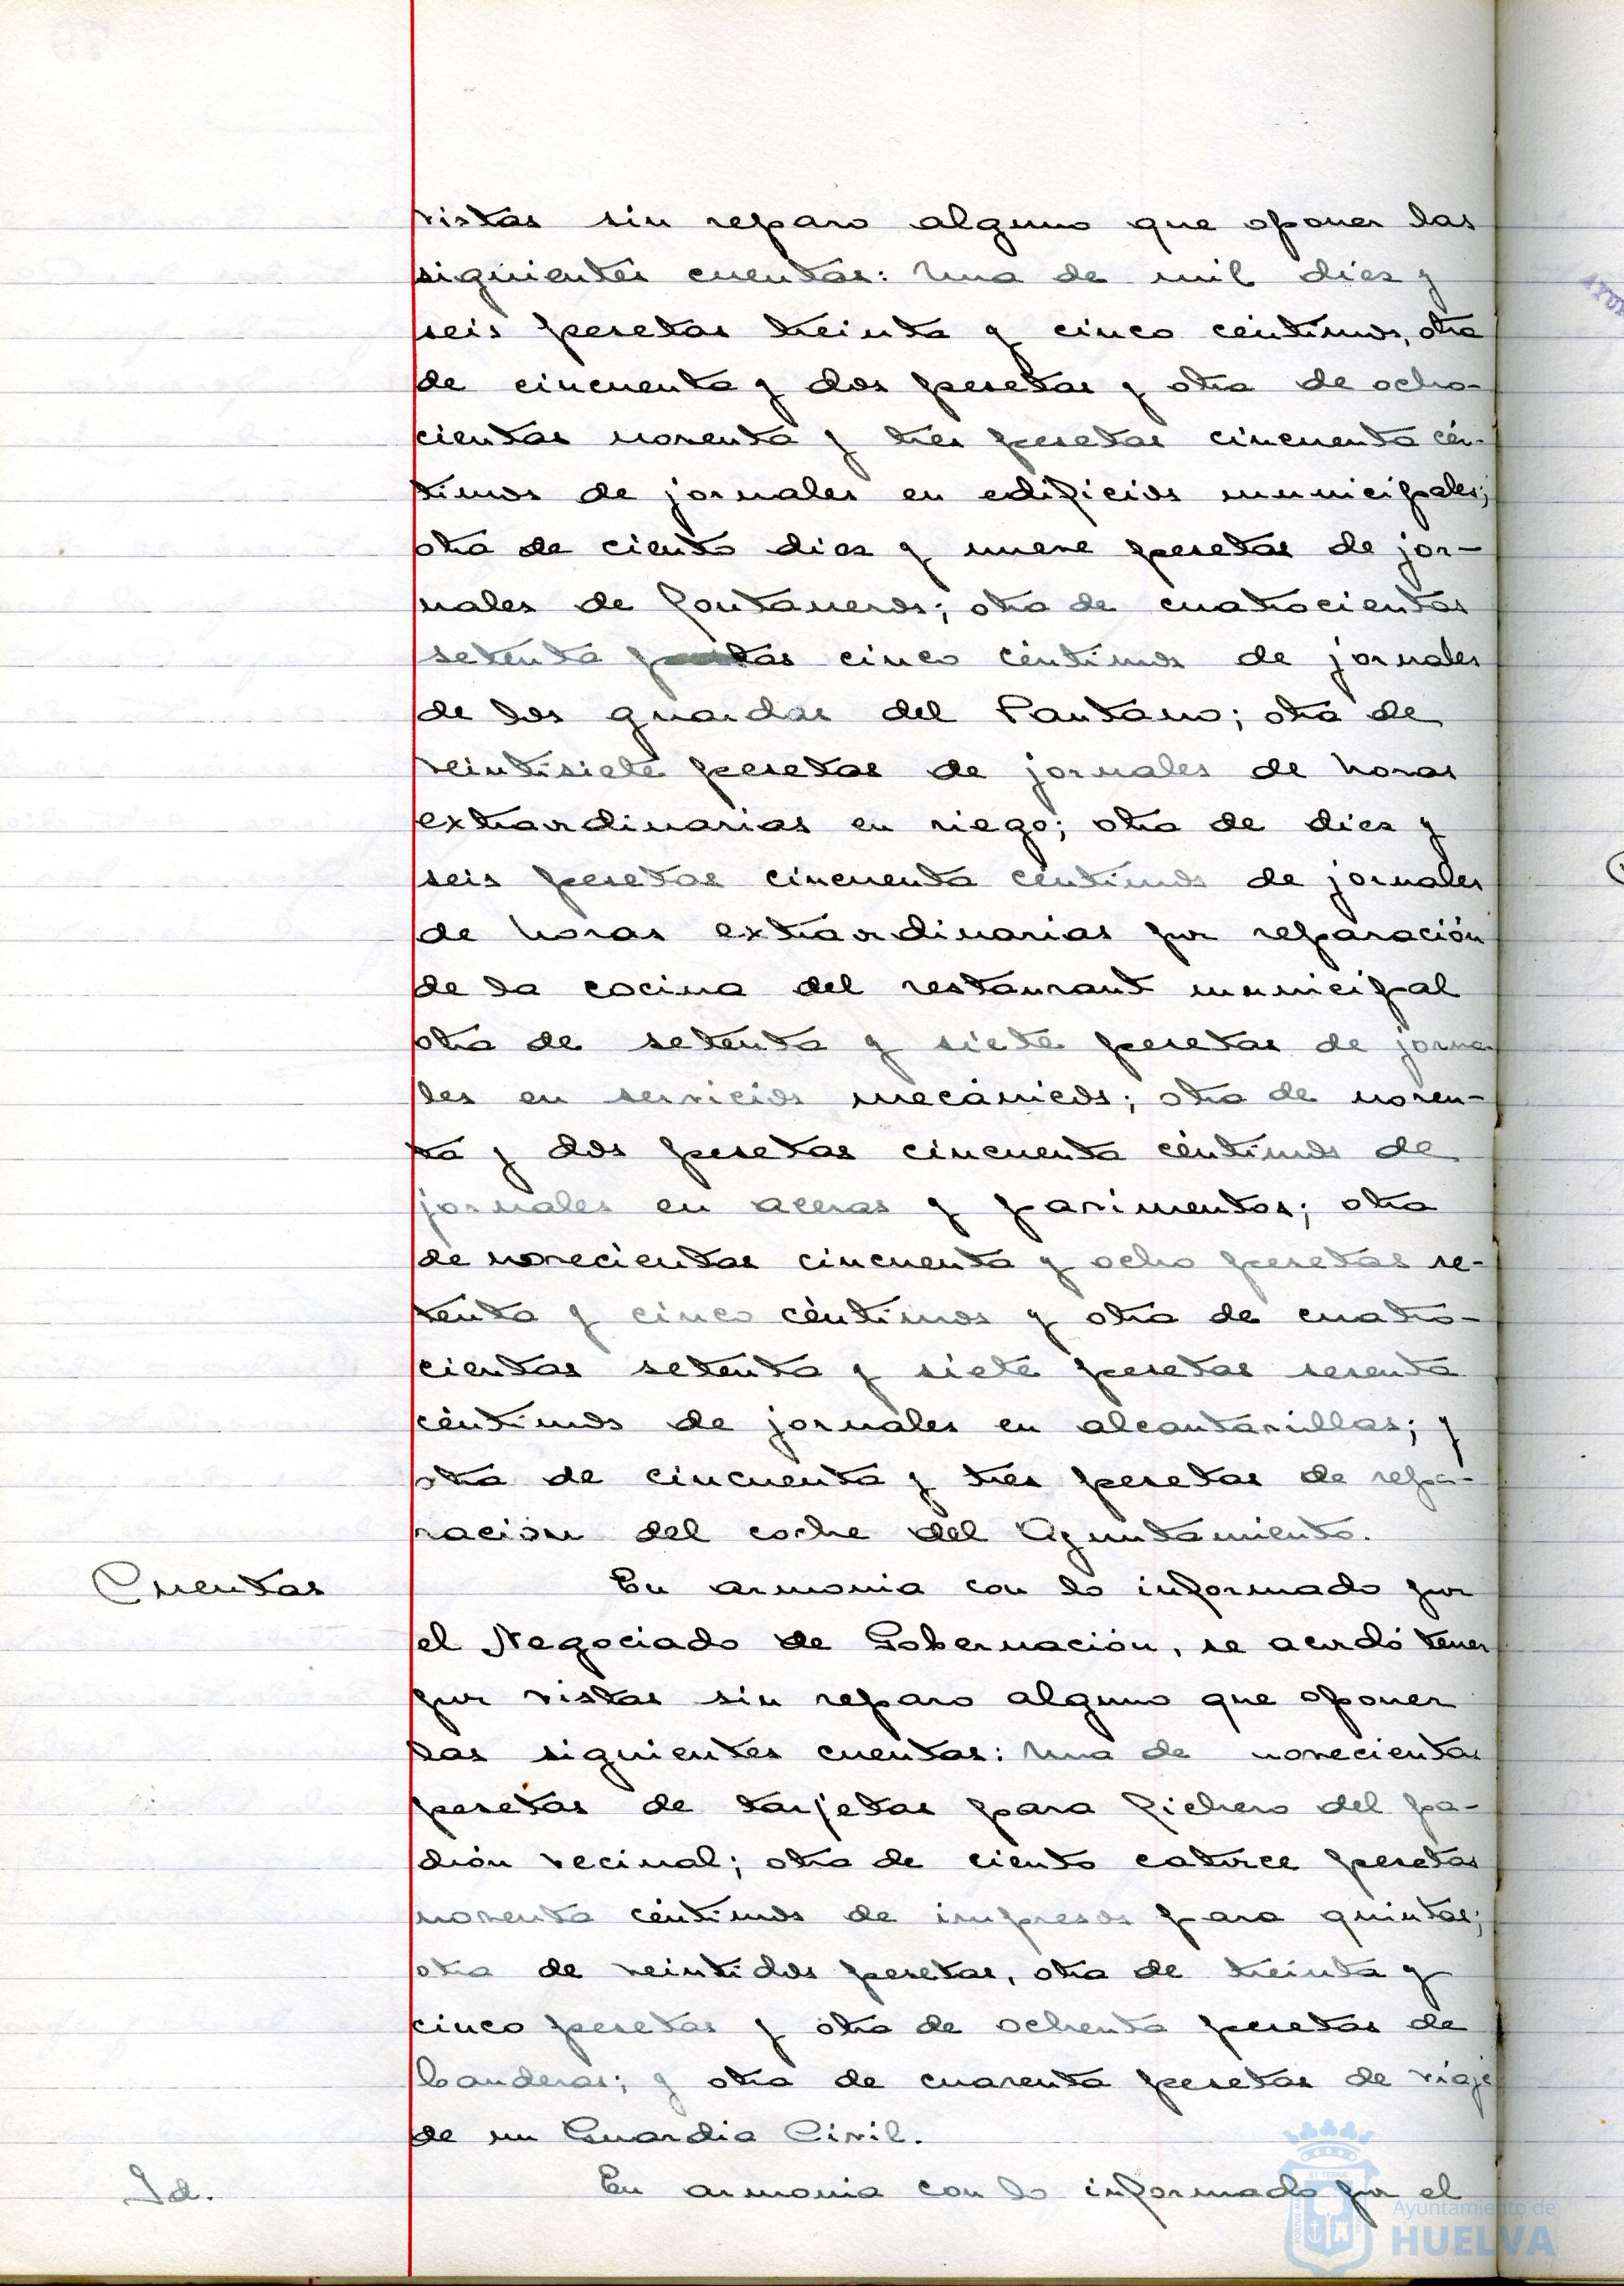 vistas sin reparo alguno que oponer las
siguientes cuentas: Una de mil diez y
seis pesetas treinta y cinco céntimos, otra
de cincuenta y dos pesetas y otra de ocho-
cientas noventa y tres pesetas cincuenta cén-
timos de jornales en edificios municipales;
otra de ciento diez y nueve pesetas de jor-
nales de fontaneros; otra de cuatrocientas
setenta pesetas cinco céntimos de jornales
de los guardas del Pantano; otra de
veintisiete pesetas de jornales de horas
extraordinarias en riego; otra de diez y
seis pesetas cincuenta céntimos de jornales
de horas extraordinarias por reparación
de la cocina del restaurant municipal
otra de setenta y siete pesetas de jorna
les en servicios mecánicos; otra de noven-
ta y dos pesetas cincuenta céntimos de
jornales en aceras y pavimentos; otra
de novecientas cincuenta y ocho pesetas se-
tenta y cinco céntimos y otra de cuatro-
cientas setenta y siete pesetas sesenta
céntimos de jornales en alcantarillas; y
otra de cincuenta y tres pesetas de repa-
ración del coche del Ayuntamiento.
Cuentas
En armonia con lo informado por
el Negociado de Gobernación, se acordó tener
por vistas sin reparo alguno que oponer
las siguientes cuentas: Una de novecientas
pesetas de tarjetas para fichero del pa-
drón vecinal; otra de ciento catorce pesetas
noventa céntimos de impresos para quintas;
otra de veintidos pesetas, otra de treinta y
cinco pesetas y otra de ochenta pesetas de
banderas; y otra de cuarenta pesetas de viaje
de un Guardia Civil.
Id.
En armonia con lo informado por el
Ayuntamiento de
HUELVA